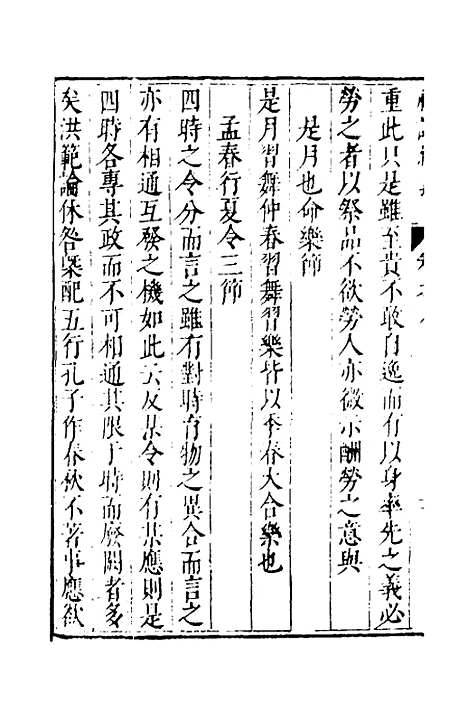 重此只是雖至貴不敢自逸而有以身率先之義必
勞之者以祭品不欲勞人亦微示酬勞之意與
是月也命樂節
是月習舞仲春習舞習樂皆以季春大合樂也
孟春行夏令三節
四時之令分而言之雖有對時育物之異合而言之
亦有相通互發之機如此云反某令則有某應則是
四時各專其政而不可相通其限于時而廢闕者多
矣洪範論休咎槩配五行孔子作春秋不著事應欲